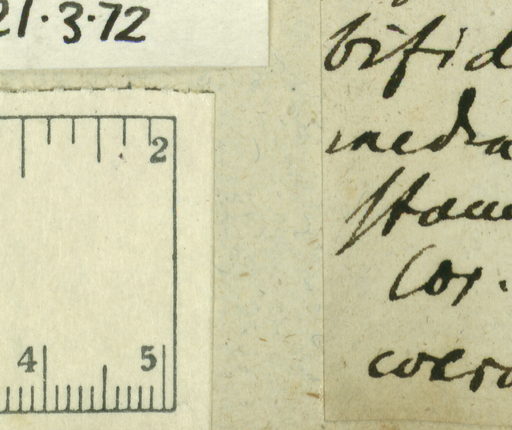 21·3·72
2
4 5
bifid
media
Stam
Cor.
coero